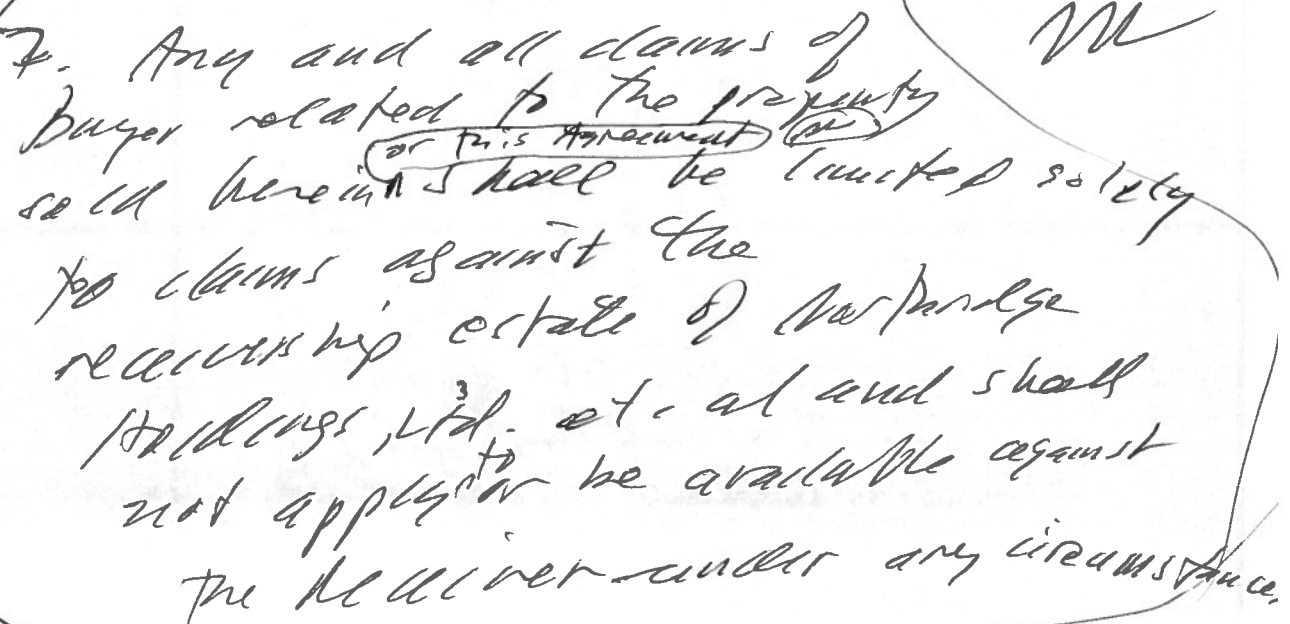 7. Any and all claims of
Buyer related to the property
or this Agreement
sold herein shall be limited solely
to claims against the
receivership estate of
Holdings, Ltd. et. al and shall
to
not apply or be available against
the Receiver under any circumstance.